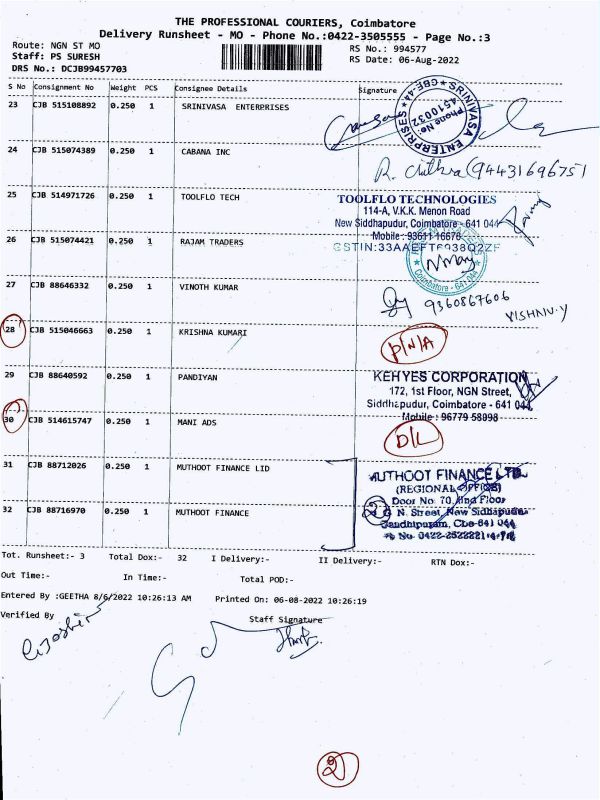 THE PROFESSIONAL COURIERS, Coimbatore
Delivery Runsheet - MO - Phone No.:0422-3505555 - Page No.:3
Route: NGN ST MO
RS No.: 994577
Staff: PS SURESH
RS Date: 06-Aug-2022
DRS No.: DCJB99457703
S No Consignment No Weight PCS Consignee Details Signature
23 CJB 515108892 0.250 1 SRINIVASA ENTERPRISES
SRINIVASA ENTERPRISES
CBE-44
Phone No:
4510032
24 CJB 515074389 0.250 1 CABANA INC
R. Chithra (9443169675)
25 CJB 514971726 0.250 1 TOOLFLO TECH
TOOLFLO TECHNOLOGIES
114-A, V.K.K. Menon Road
New Siddhapudur, Coimbatore - 641 044
Mobile : 93611 16676
26 CJB 515074421 0.250 1 RAJAM TRADERS
Coimbatore - 641
27 CJB 88646332 0.250 1 VINOTH KUMAR
9360867606
VISHNU.Y
28 CJB 515046663 0.250 1 KRISHNA KUMARI
P/N/A
29 CJB 88640592 0.250 1 PANDIYAN
KEHYES CORPORATION
172, 1st Floor, NGN Street,
Siddhapudur, Coimbatore - 641 044,
Mobile : 96779 58998
30 CJB 514615747 0.250 1 MANI ADS
D/L
31 CJB 88712026 0.250 1 MUTHOOT FINANCE LID
MUTHOOT FINANCE LTD.
(REGIONAL OFFICE)
Door No. 70, IInd Floor
G. N. Street, New Siddhapudur
Gandhipuram, Cbe-641 044
32 CJB 88716970 0.250 1 MUTHOOT FINANCE
Tot. Runsheet:- 3 Total Dox:- 32 I Delivery:- II Delivery:- RTN Dox:-
Out Time:- In Time:- Total POD:-
Entered By :GEETHA 8/6/2022 10:26:13 AM Printed On: 06-08-2022 10:26:19
Verified By
Staff Signature
2